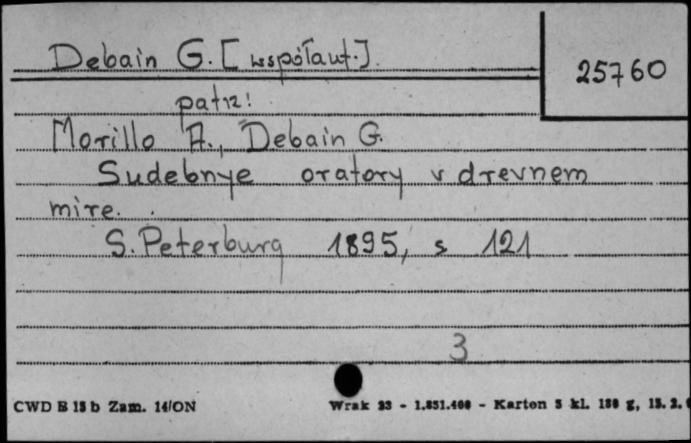 Debain G. [współaut.]
25760
patrz:
Morillo A., Debain G.
Sudebnye oratory v drevnem
mire.
S. Peterburg 1895, s 121
3
CWD B 15 b Zam. 14/ON
Wrak 23 - 1.851.400 - Karton 5 kl. 180 g, 15.2.